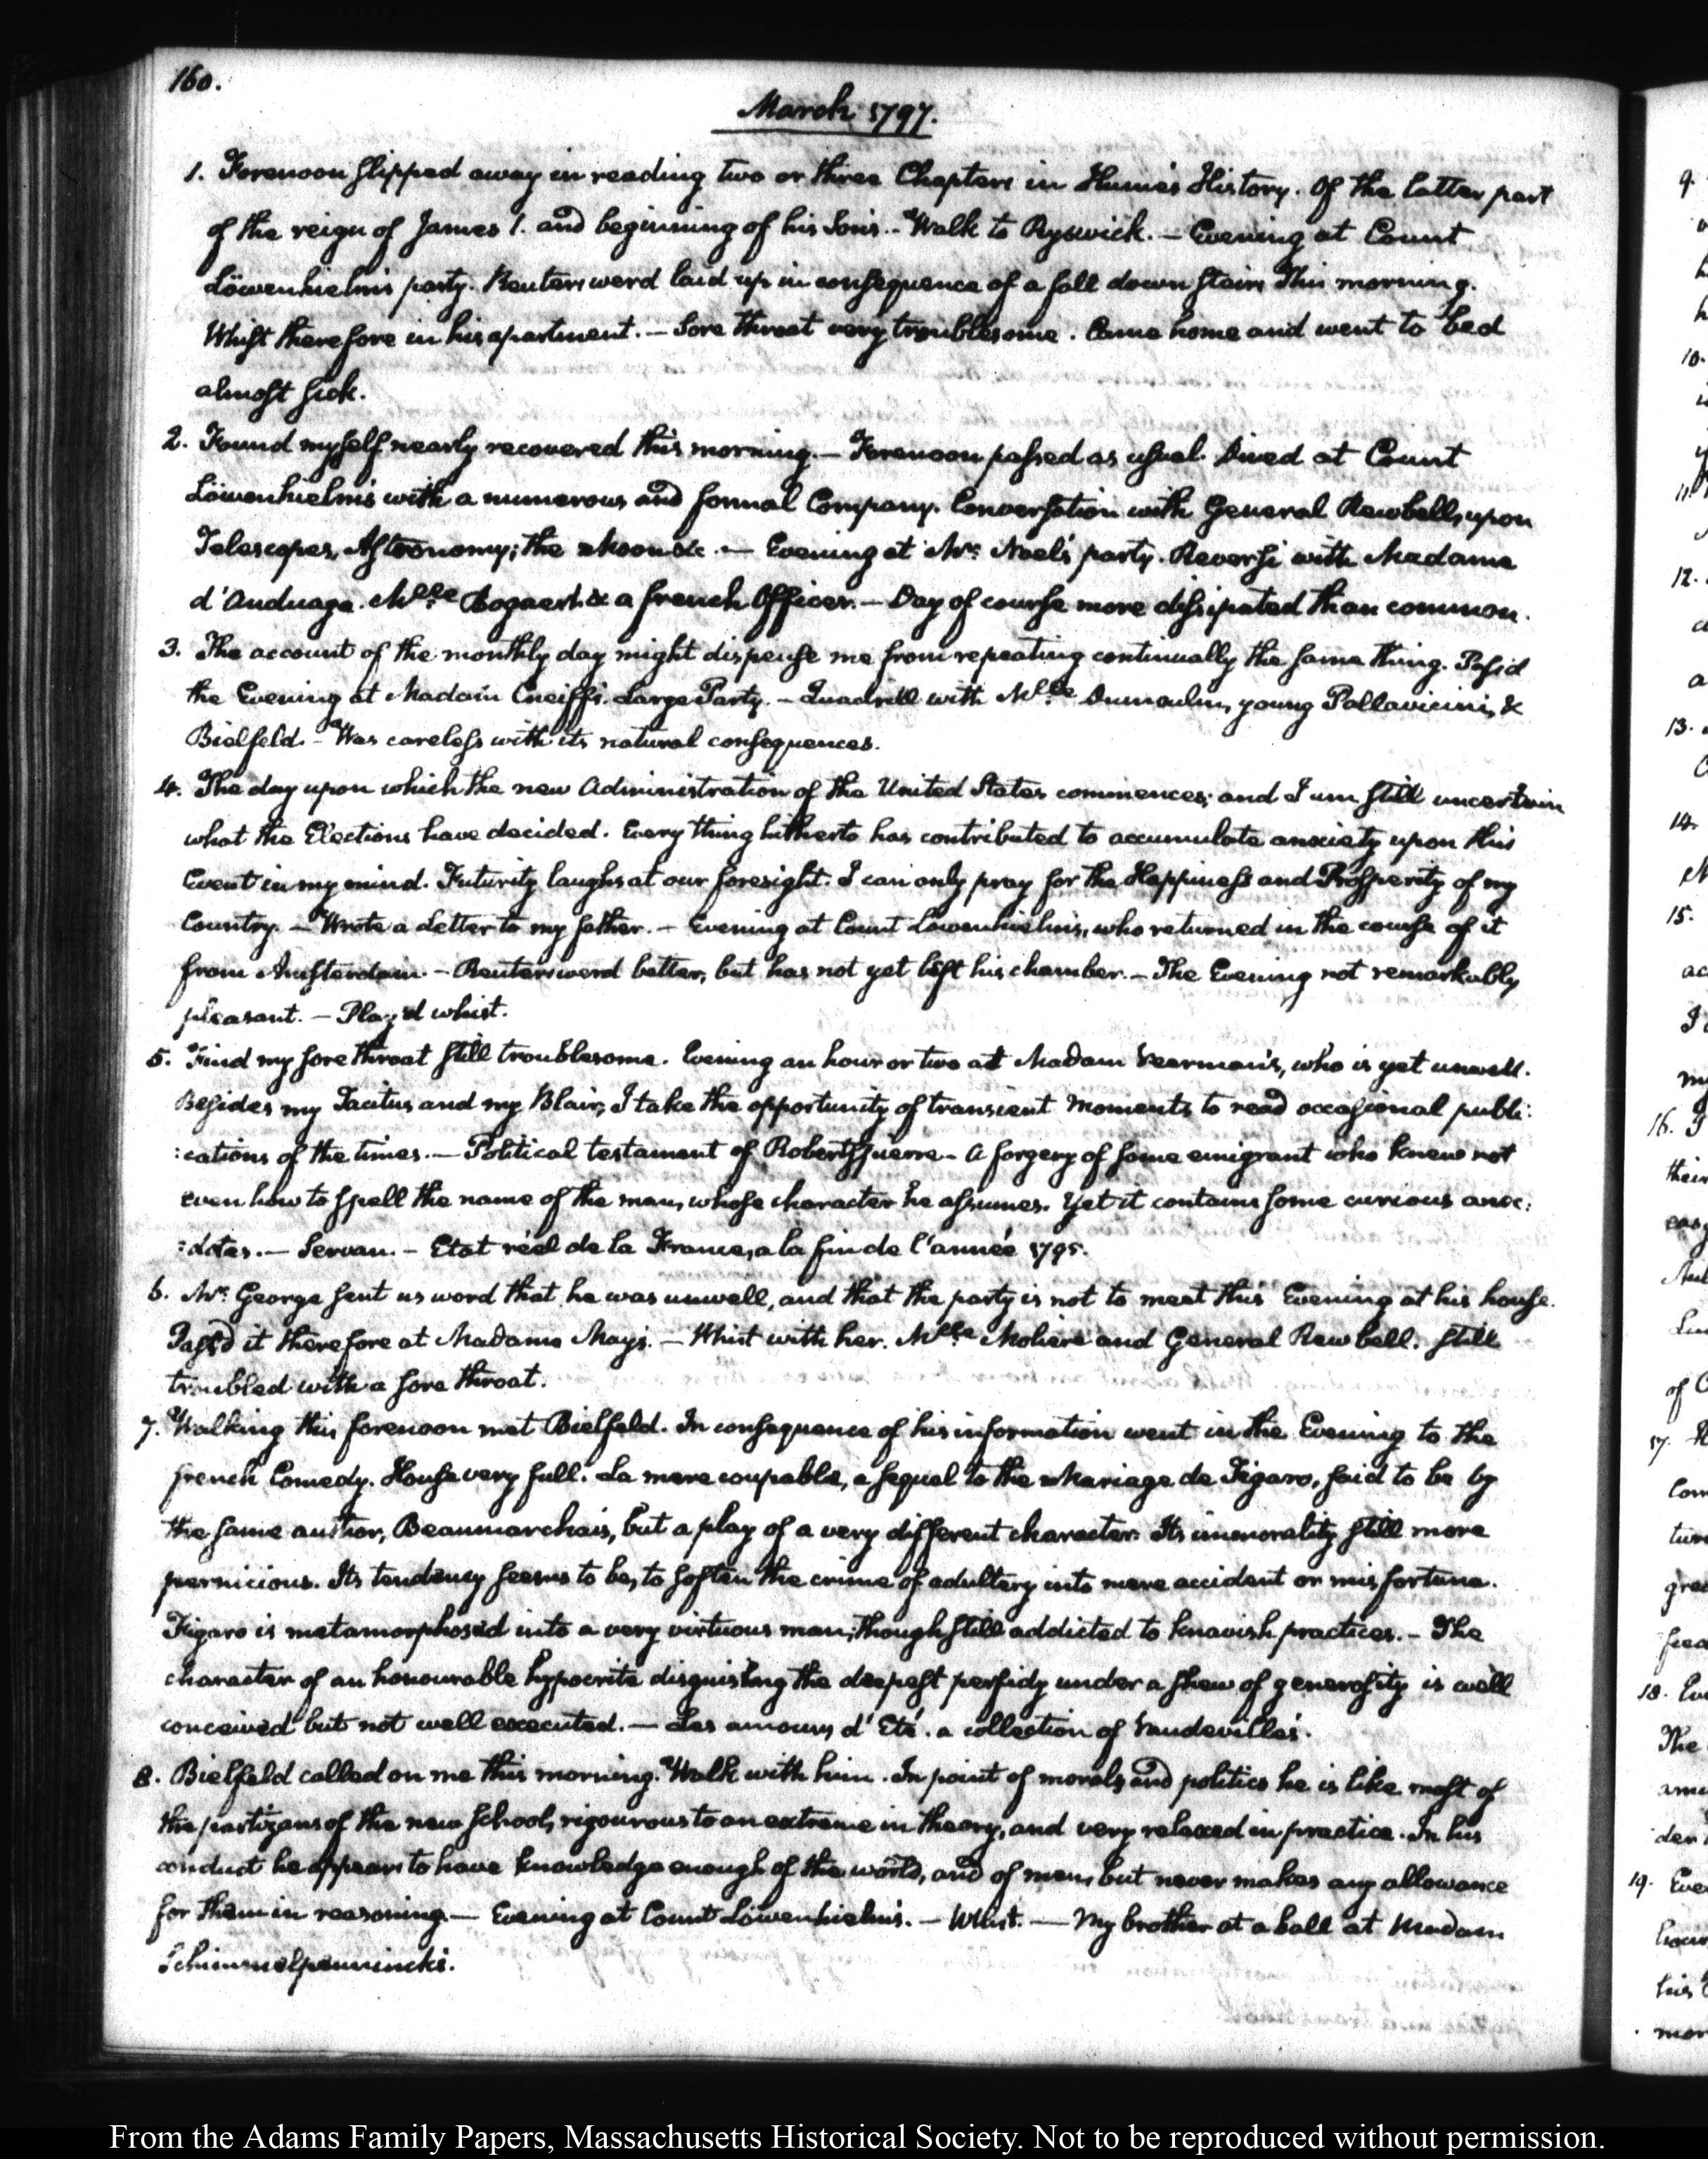 160.
March 1797.
1. Forenoon slipped away in reading two or three Chapters in Hume's History. Of the latter part
of the reign of James 1. and beginning of his Son's. - Walk to Ryswick. — Evening at Count
Löwenhielm's party. Reutersward laid up in consequence of a fall down stairs this morning.
Whist therefore in his apartment. — Sore throat very troublesome. Came home and went to bed
almost sick.
2. Found myself nearly recovered this morning. — Forenoon passed as usual. Dined at Count
Löwenhielm's with a numerous and formal Company. Conversation with General Rewbell, upon
Telescopes, Astronomy; the Moon &c. — Evening at Mr. Noel's party. Reversi with Madame
d'Anduaga. Mlle. Bogaert & a french Officer. — Day of course more dissipated than common.
3. The account of the monthly day might dispense me from repeating continually the same thing. Pass'd
the Evening at Madam Cneiff's. Large Party. — Quadrill with Mlle. Dumoulin, young Pallavicini, &
Bielfeld. — Was careless with its natural consequences.
4. The day upon which the new Administration of the United States commences; and I am still uncertain
what the Elections have decided. Every thing hitherto has contributed to accumulate anxiety upon this
Event in my mind. Futurity laughs at our foresight. I can only pray for the Happiness and Prosperity of my
Country. — Wrote a Letter to my father. — Evening at Count Löwenhielm's, who returned in the course of it
from Amsterdam. — Reutersward better, but has not yet left his chamber. — The Evening not remarkably
pleasant. — Play'd whist.
5. Find my sore throat still troublesome. Evening an hour or two at Madam Veerman's, who is yet unwell.
Besides my Tacitus and my Blair, I take the opportunity of transient Moments to read occasional publi:
:cations of the times. — Political testament of Robertspierre - a forgery of some emigrant who knew not
even how to spell the name of the man, whose character he assumes. Yet it contains some curious anec:
:dotes. — Servan. — Etat réel de la France, a la fin de l'année 1795.
6. Mr. George sent us word that he was unwell, and that the party is not to meet this Evening at his house.
Pass'd it therefore at Madame May's. — Whist with her. Mlle. Moliere and General Rewbell. Still
troubled with a sore throat.
7. Walking this forenoon met Bielfeld. In consequence of his information went in the Evening to the
french Comedy. House very full. La mere coupable, a sequel to the Mariage de Figaro, said to be by
the same author, Beaumarchais, but a play of a very different character. Its immorality still more
pernicious. Its tendency seems to be, to soften the crime of adultery into mere accident or misfortune.
Figaro is metamorphosed into a very virtuous man; though still addicted to knavish practices. — The
character of an honourable hypocrite disguising the deepest perfidy under a shew of generosity is well
conceived but not well executed. — Les amours d'Eté. a collection of Vaudevilles.
8. Bielfeld called on me this morning. Walk with him. In point of morals and politics he is like most of
the partizans of the new School, rigourous to an extreme in theory, and very relaxed in practice. In his
conduct he appears to have knowledge enough of the world, and of men, but never makes any allowance
for them in reasoning. — Evening at Count Löwenhielm's. — Whist. — My brother at a ball at Madam
Schimmelpennincks.
From the Adams Family Papers, Massachusetts Historical Society. Not to be reproduced without permission.